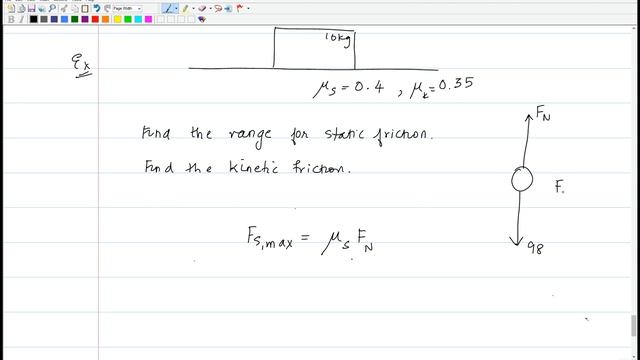 Page Width
10kg
Ex
μs = 0.4 , μk = 0.35
Find the range for static friction.
FN
Find the kinetic friction.
F.
Fs,max = μs FN
98